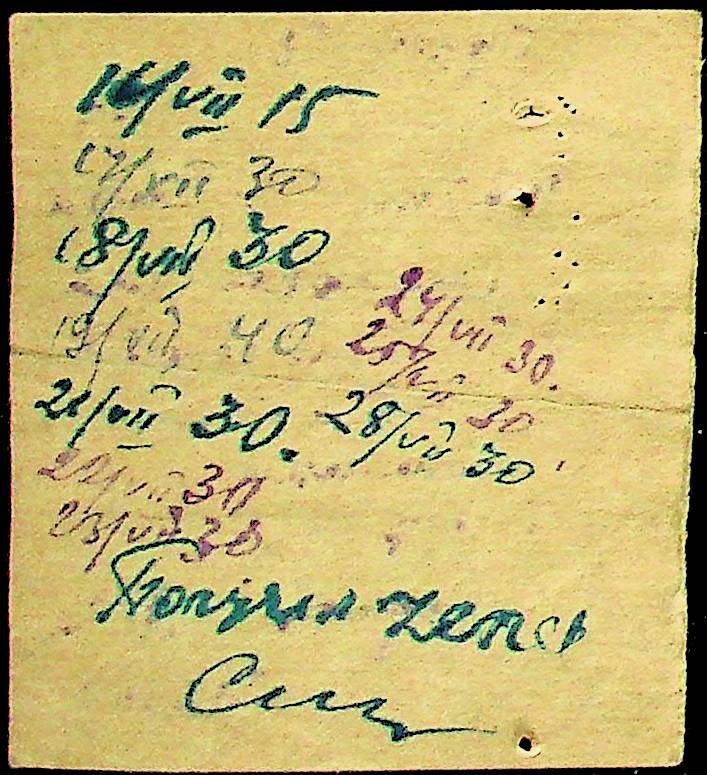 16/VII 15
17/VII 30
18/VII 30
19/VII 40.
21/VII 30.
22/VII 30
23/VII 30
24/VII 30.
25/VII 30
28/VII 30
Получил